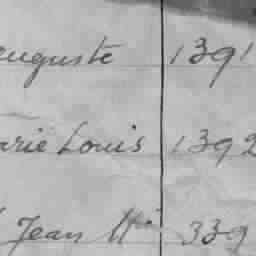 euguste 1391
arie Louis 1392
Jean 339